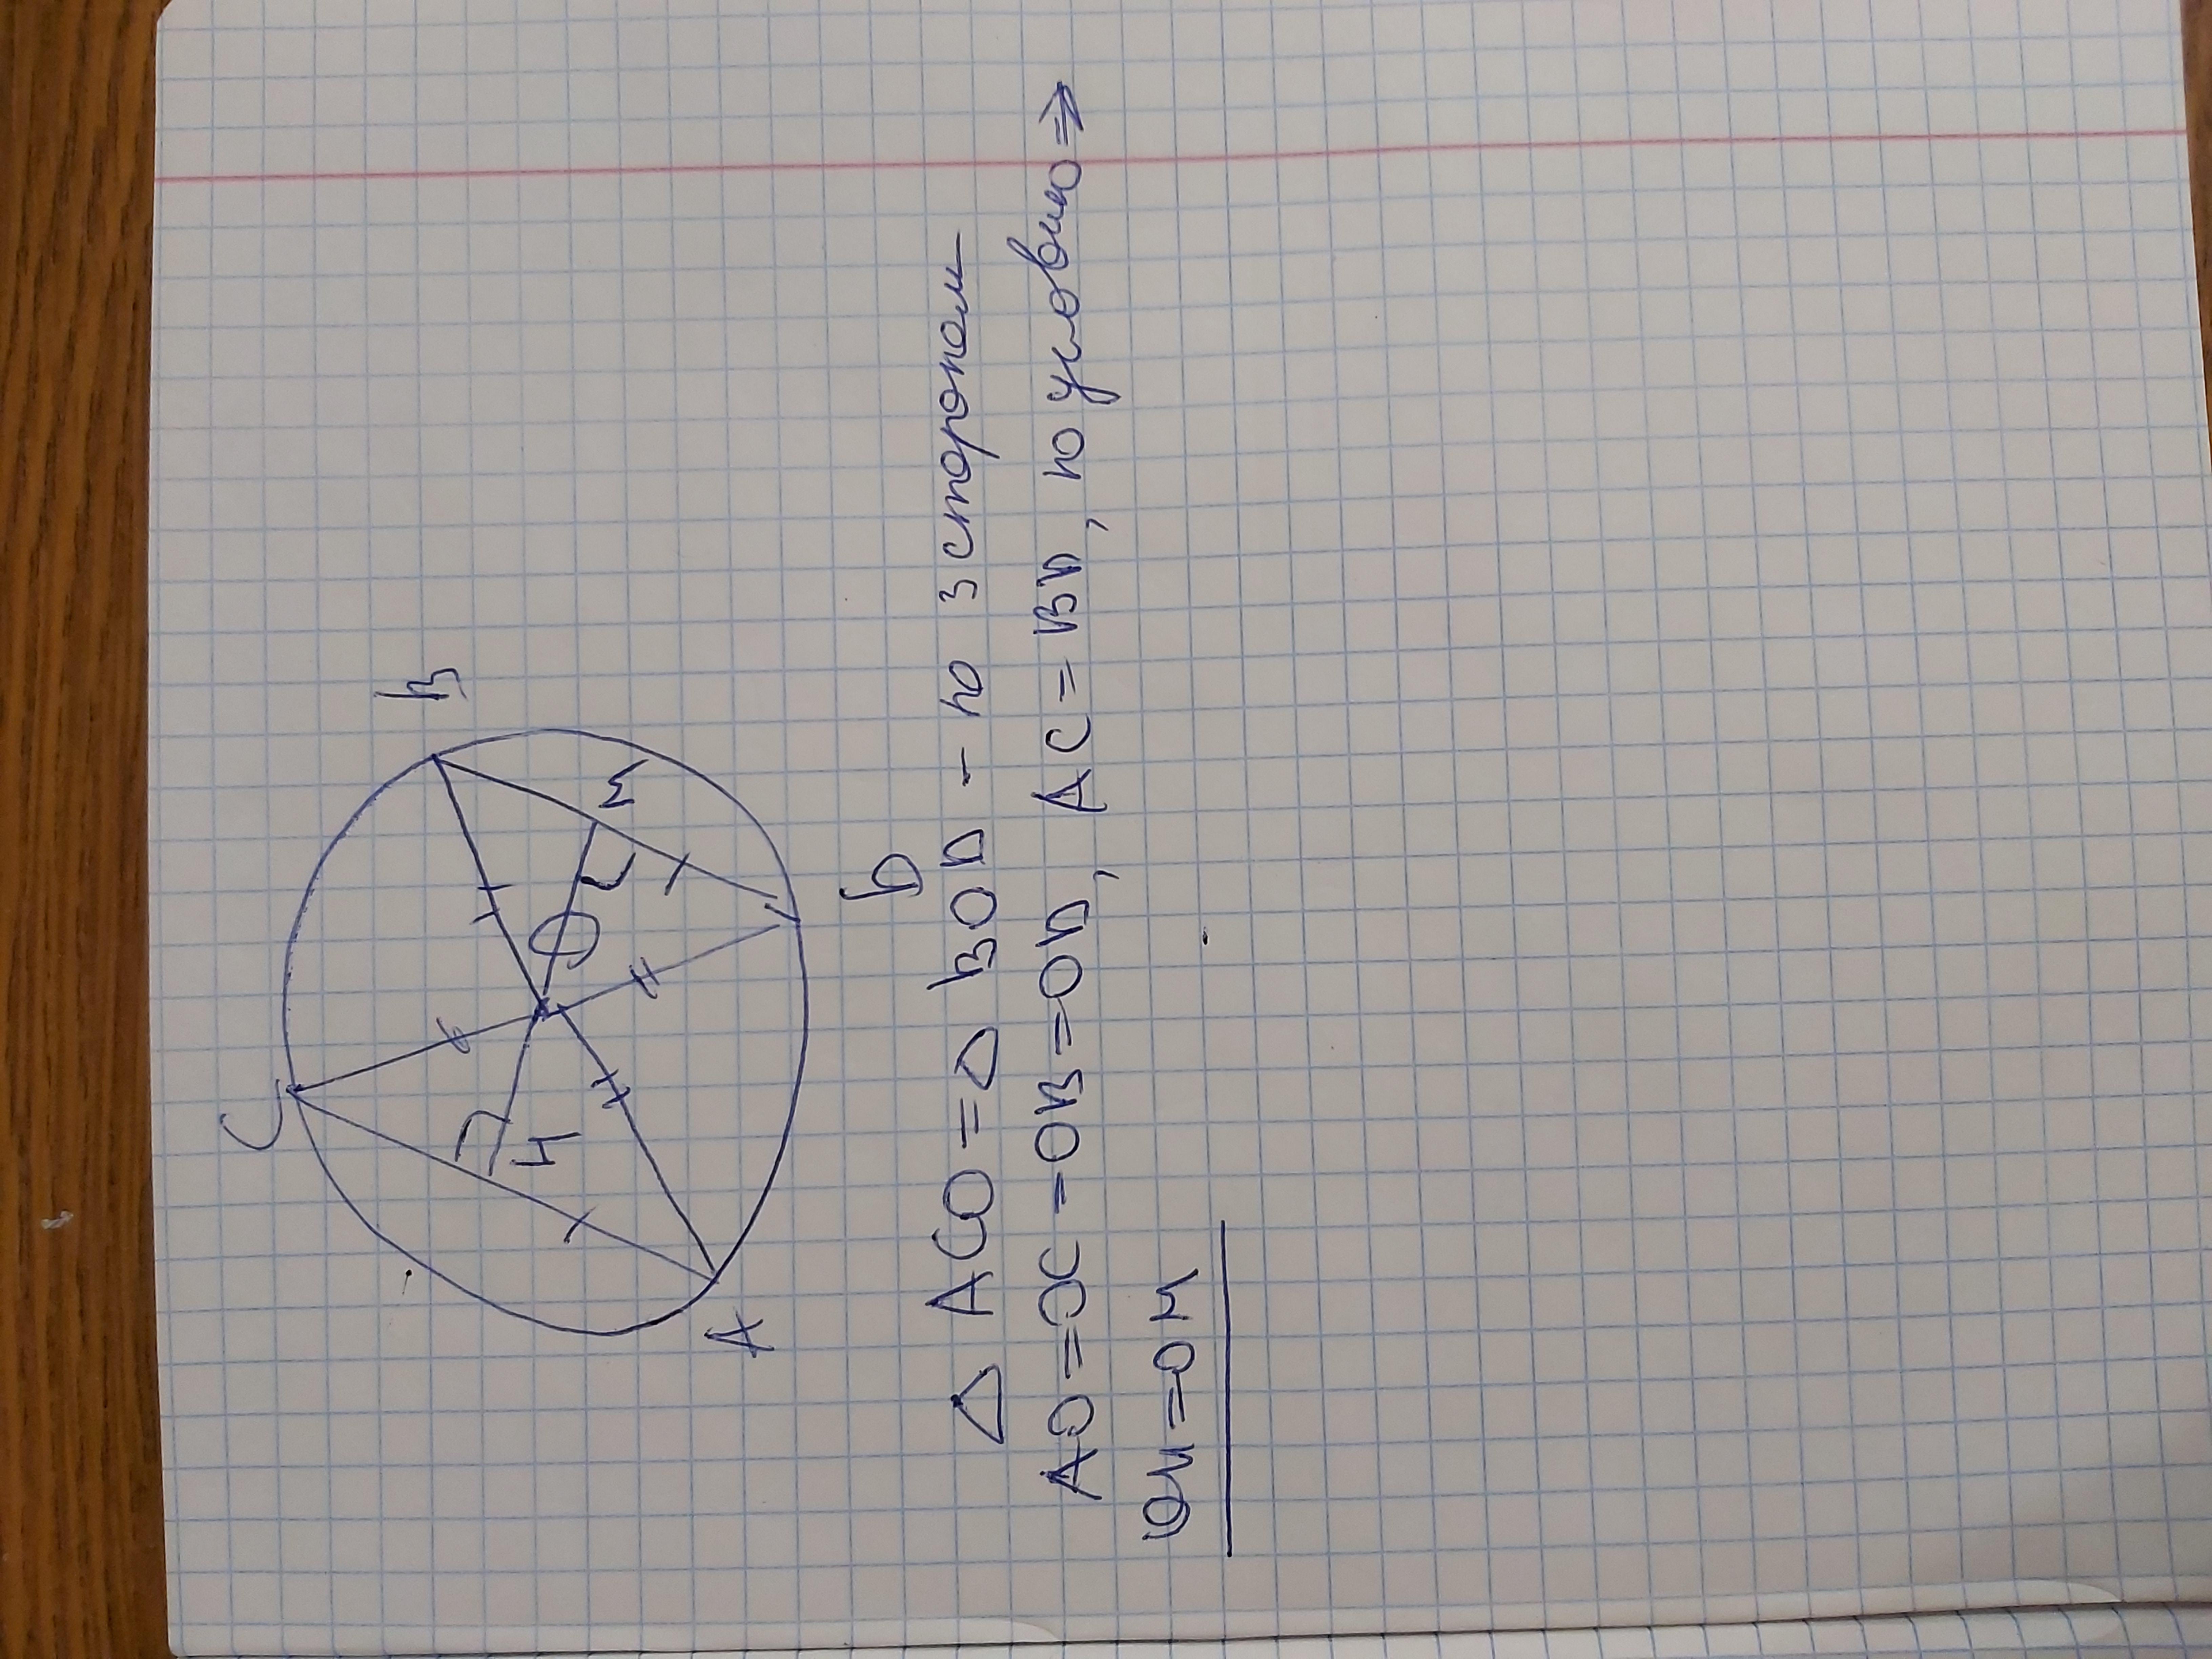 C
B
H
O
M
A
D
△ ACO = △ BOD - по 3 сторонам
AO = OC = OB = OD, AC = BD, по условию ⇒
OH = OM